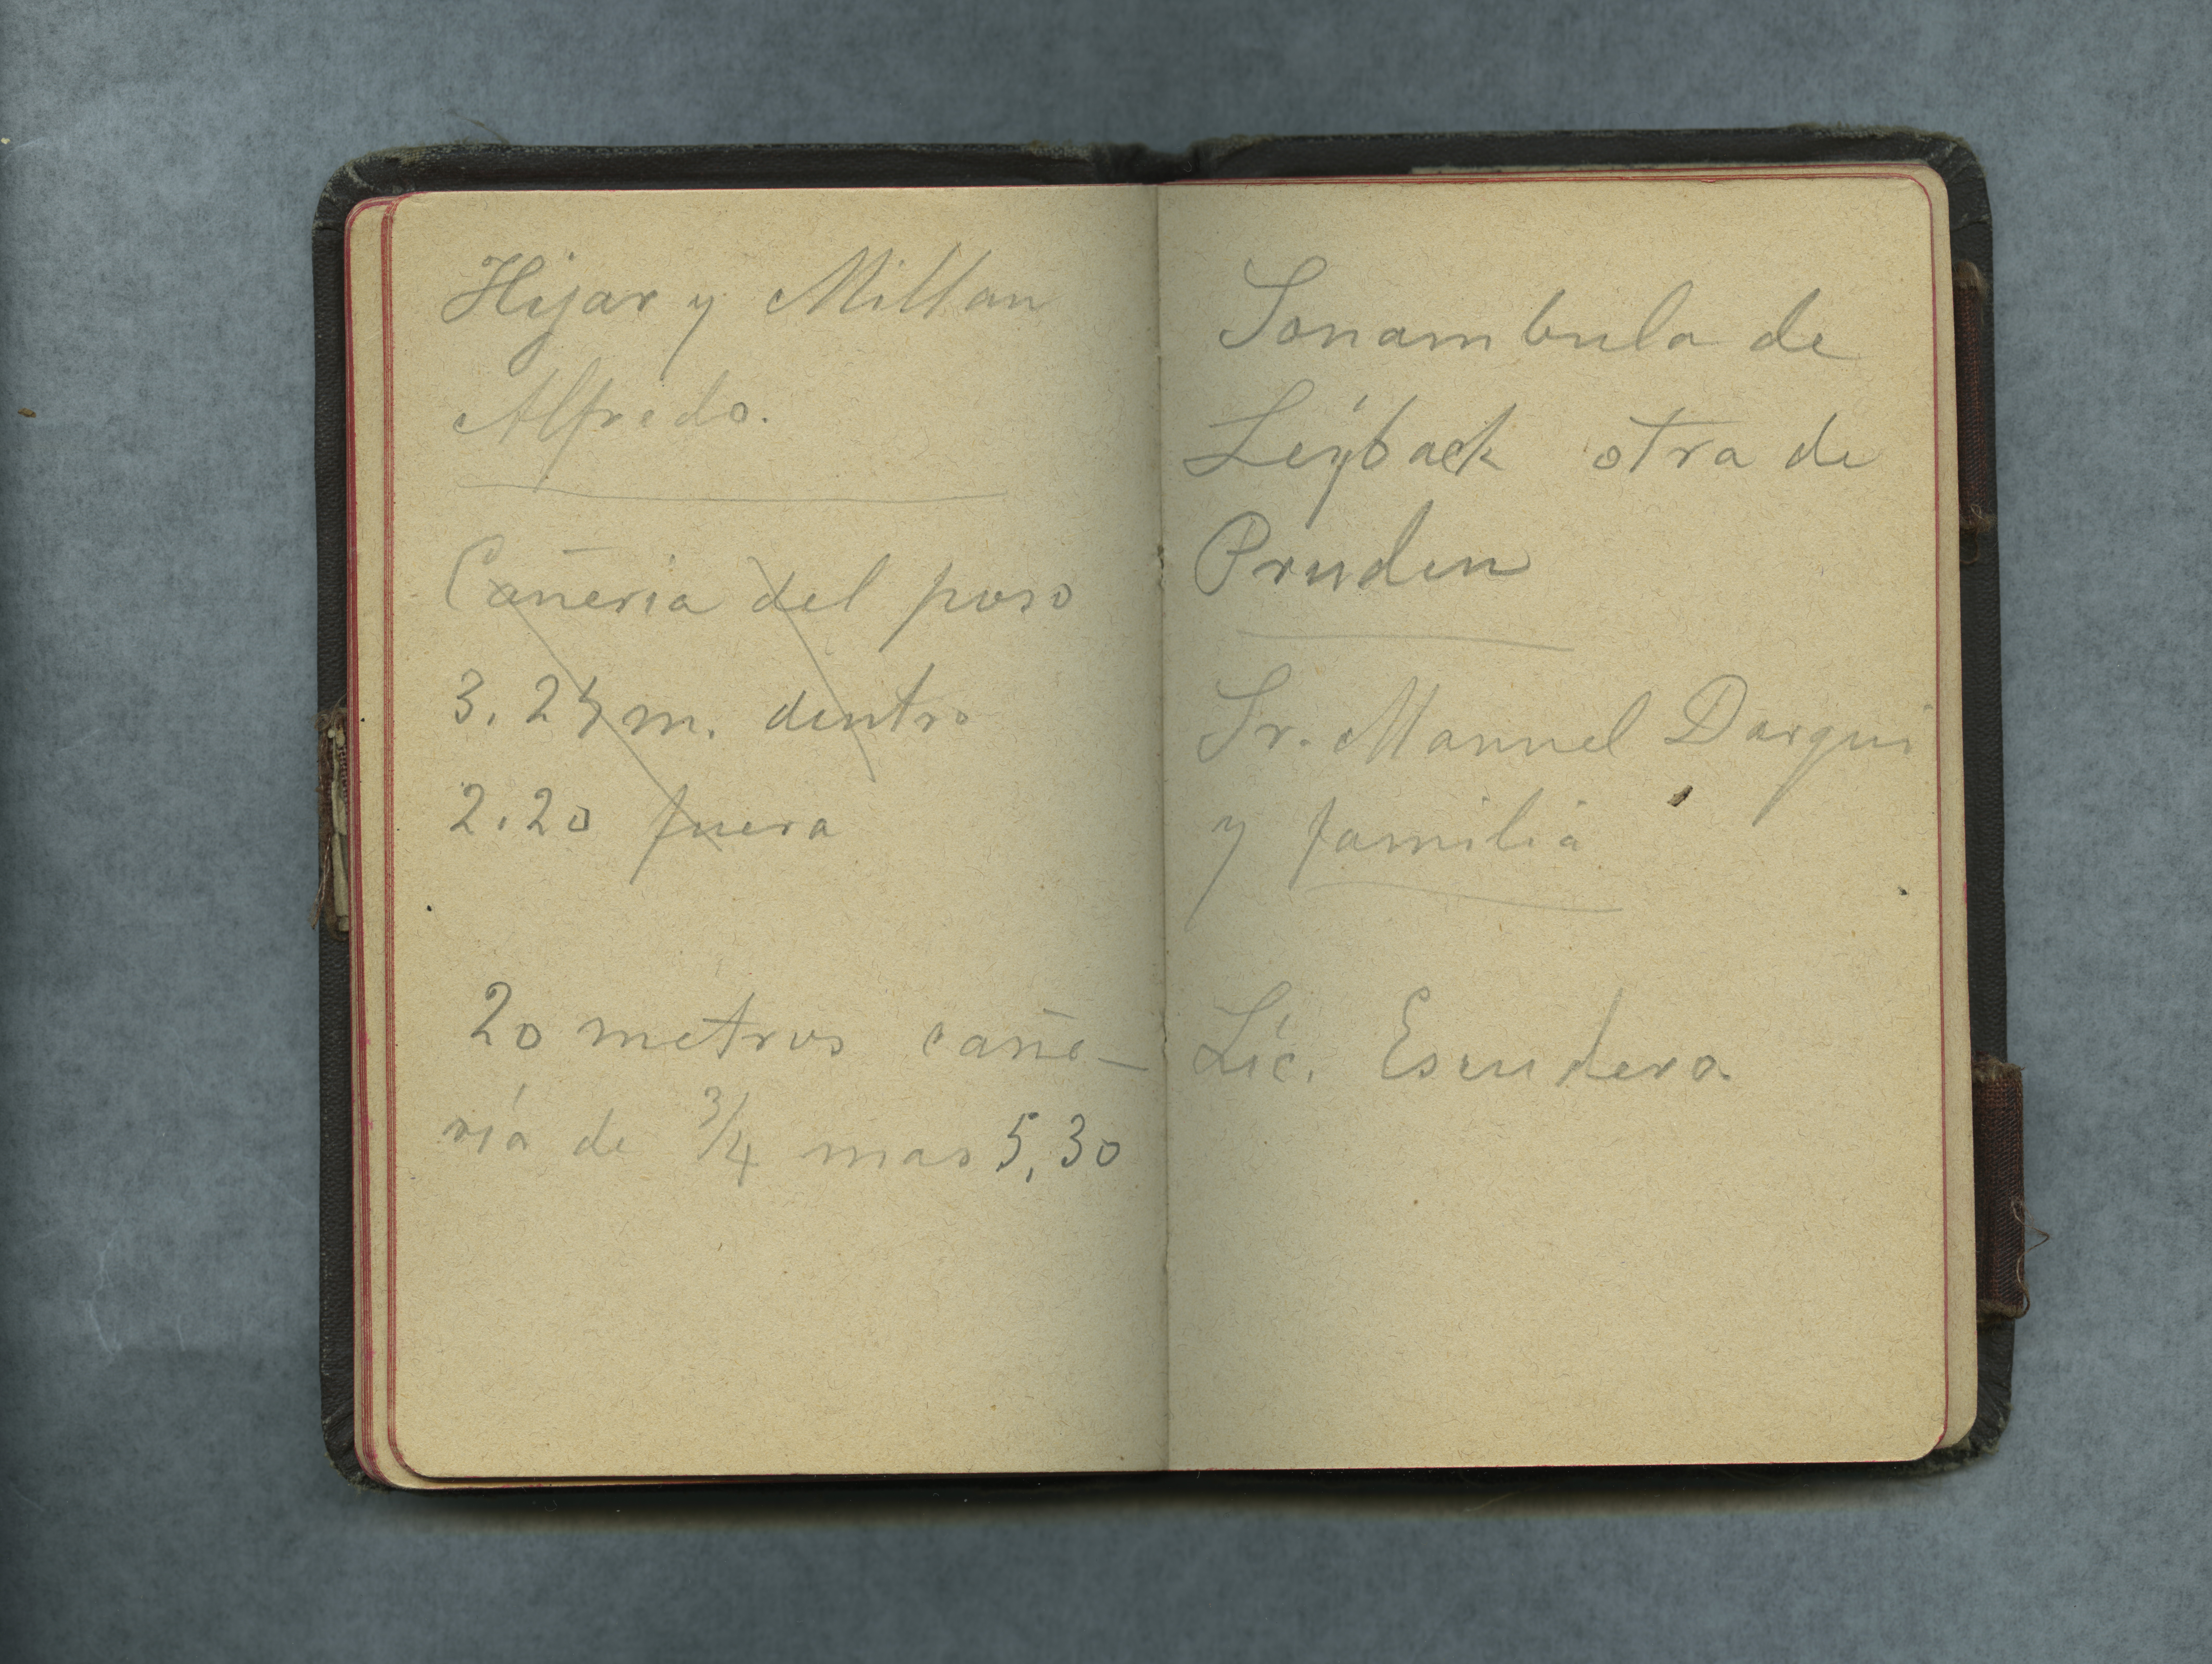 Hijar y Millan
Alfredo.
Cañeria del poso
3.25 m. dentro
2.20 fuera
20 metros cañe-
ría de 3/4 mas 5,30
Sonambula de
Leyback otra de
Pruden
Sr. Manuel Darqui
y familia
Lic. Escudero.